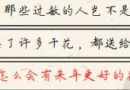 那些过敏的人岂不是
了许多干花，都送给
怎么会有来年更好的